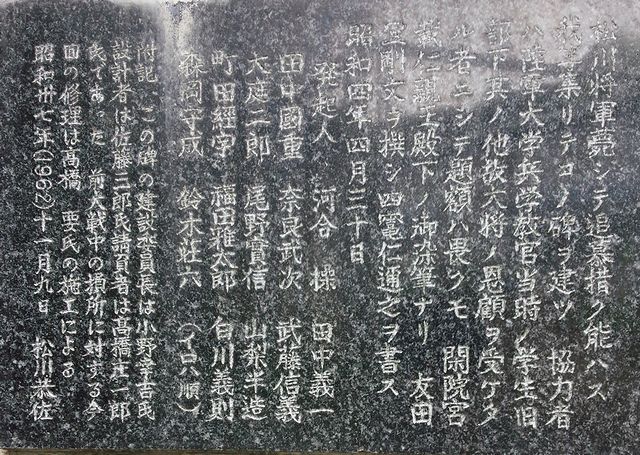 松川将軍薨シテ追慕措ク能ハス
我等集リテコノ碑ヲ建ツ 協力者
ハ陸軍大学兵学教官当時ノ学生旧
部下其ノ他故大将ノ恩顧ヲ受ケタ
ル者ニシテ題額ハ畏クモ 閑院宮
載仁親王殿下ノ御染筆ナリ 友田
宜剛文ヲ撰シ四竃仁邇之ヲ書ス
昭和四年四月三十日
発起人 河合 操 田中義一
田中國重 奈良武次 武藤信義
大庭二郎 尾野實信 山梨半造
町田經宇 福田雅太郎 白川義則
森岡守成 鈴木荘六 (イロハ順)
附記 この碑の建設委員長は小野幸吉氏
設計者は佐藤三郎氏請負者は髙橋庄一郎
氏であった 前大戦中の損所に対する今
面の修理は髙橋 要氏の施工による
昭和卅七年(1962)十一月九日 松川恭佐